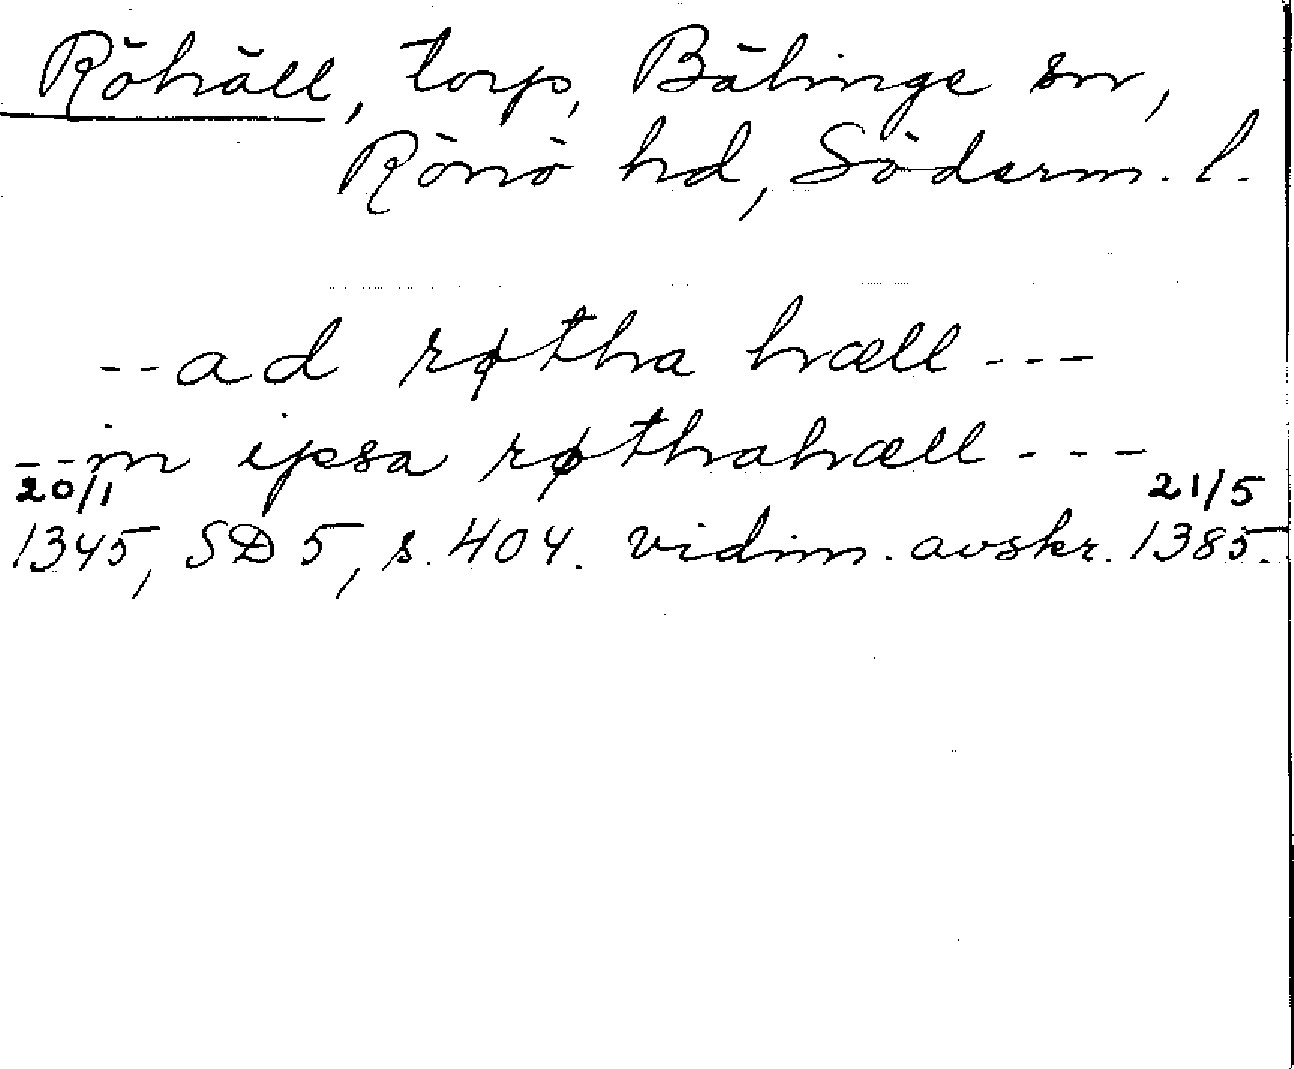 Röhäll, torp, Bälinge sn,
Rönö hd, Söderm. l.
--ad røtha hæll---
--in ipsa røthahæll---
20/1 21/5
1345, SD 5, s. 404. vidim. avskr. 1385.